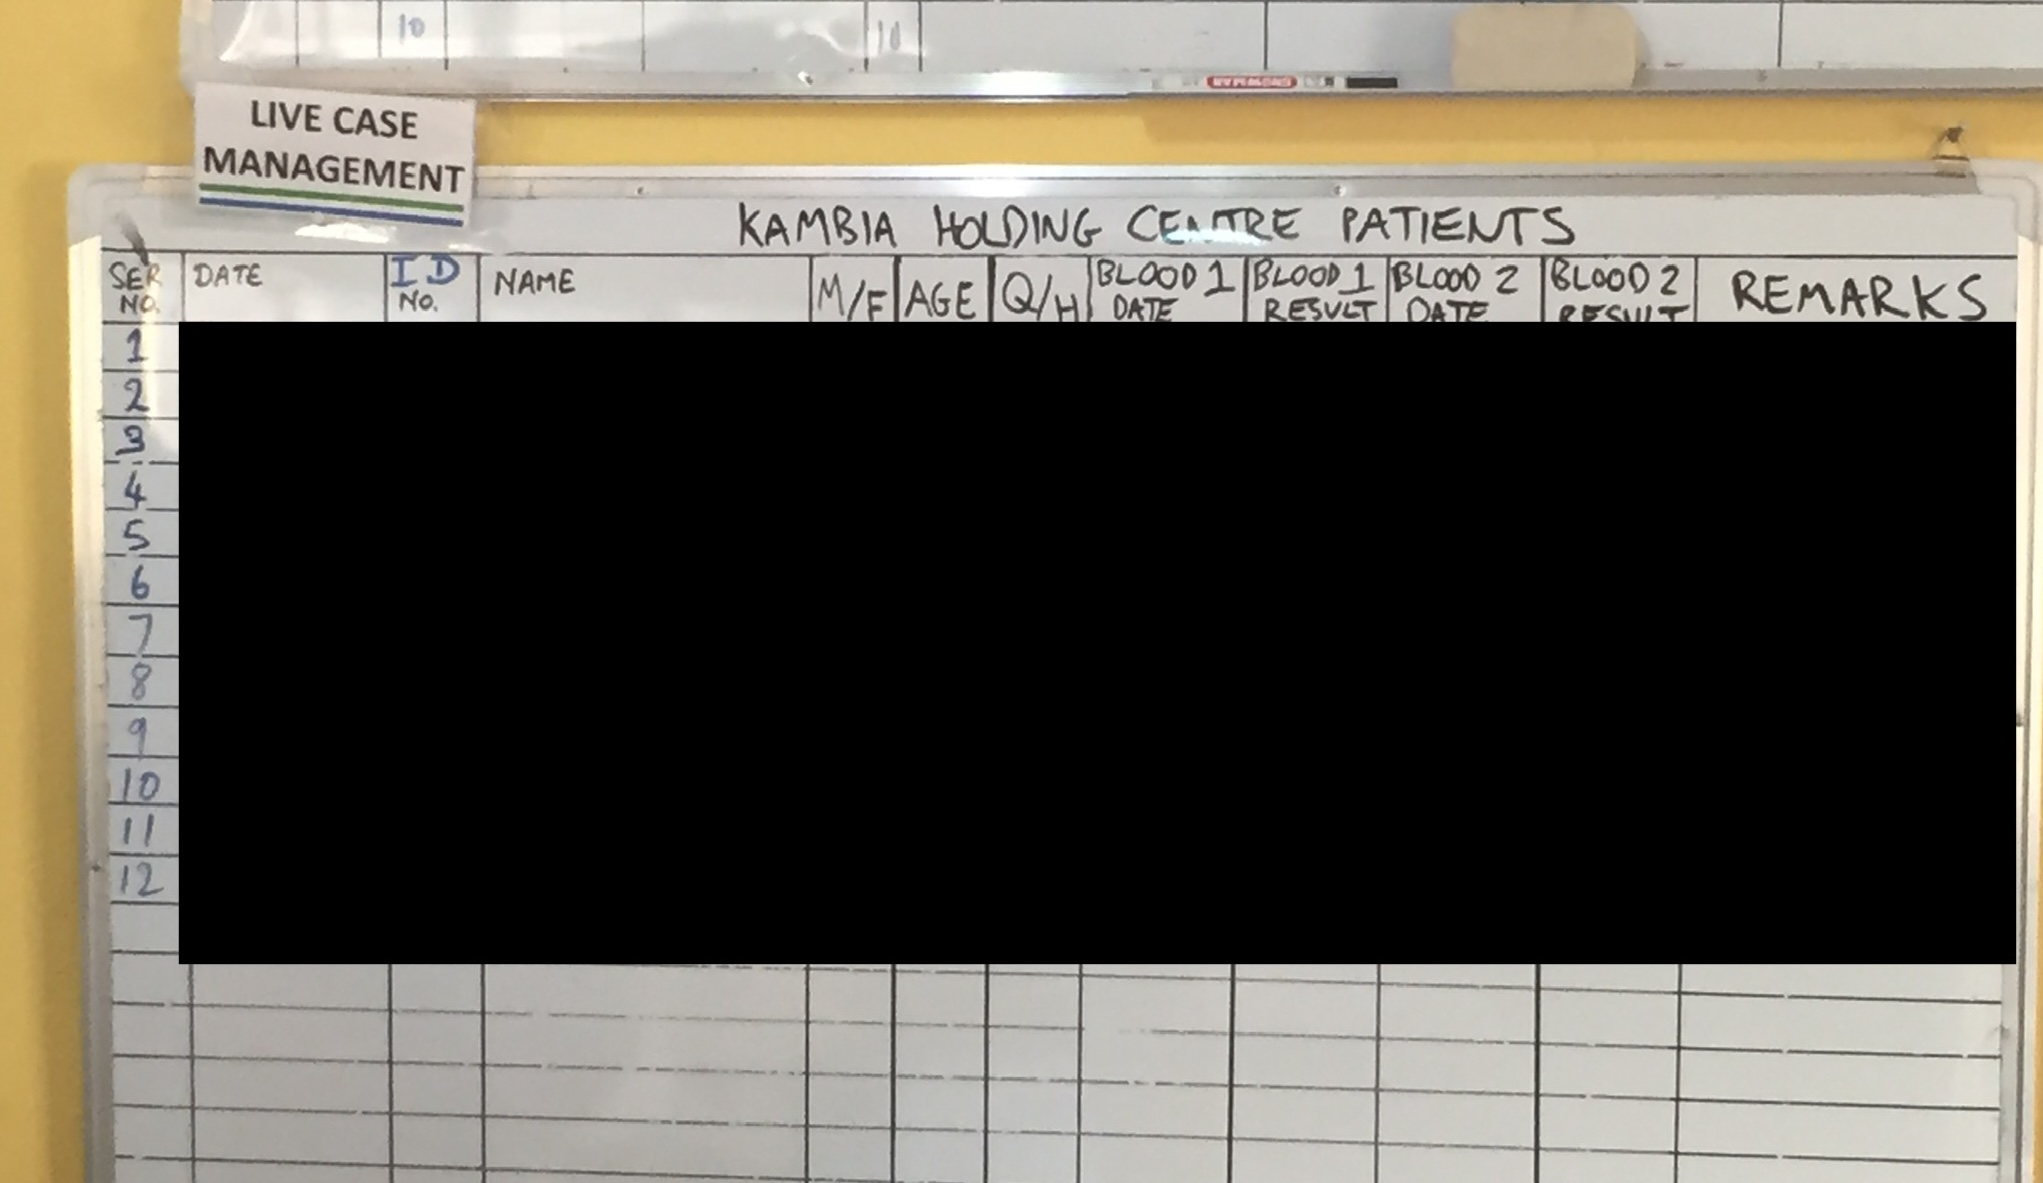 10 10
LIVE CASE
MANAGEMENT
KAMBIA HOLDING CENTRE PATIENTS
SER NO. DATE ID NO. NAME M/F AGE Q/H BLOOD 1 DATE BLOOD 1 RESULT BLOOD 2 DATE BLOOD 2 RESULT REMARKS
1
2
3
4
5
6
7
8
9
10
11
12